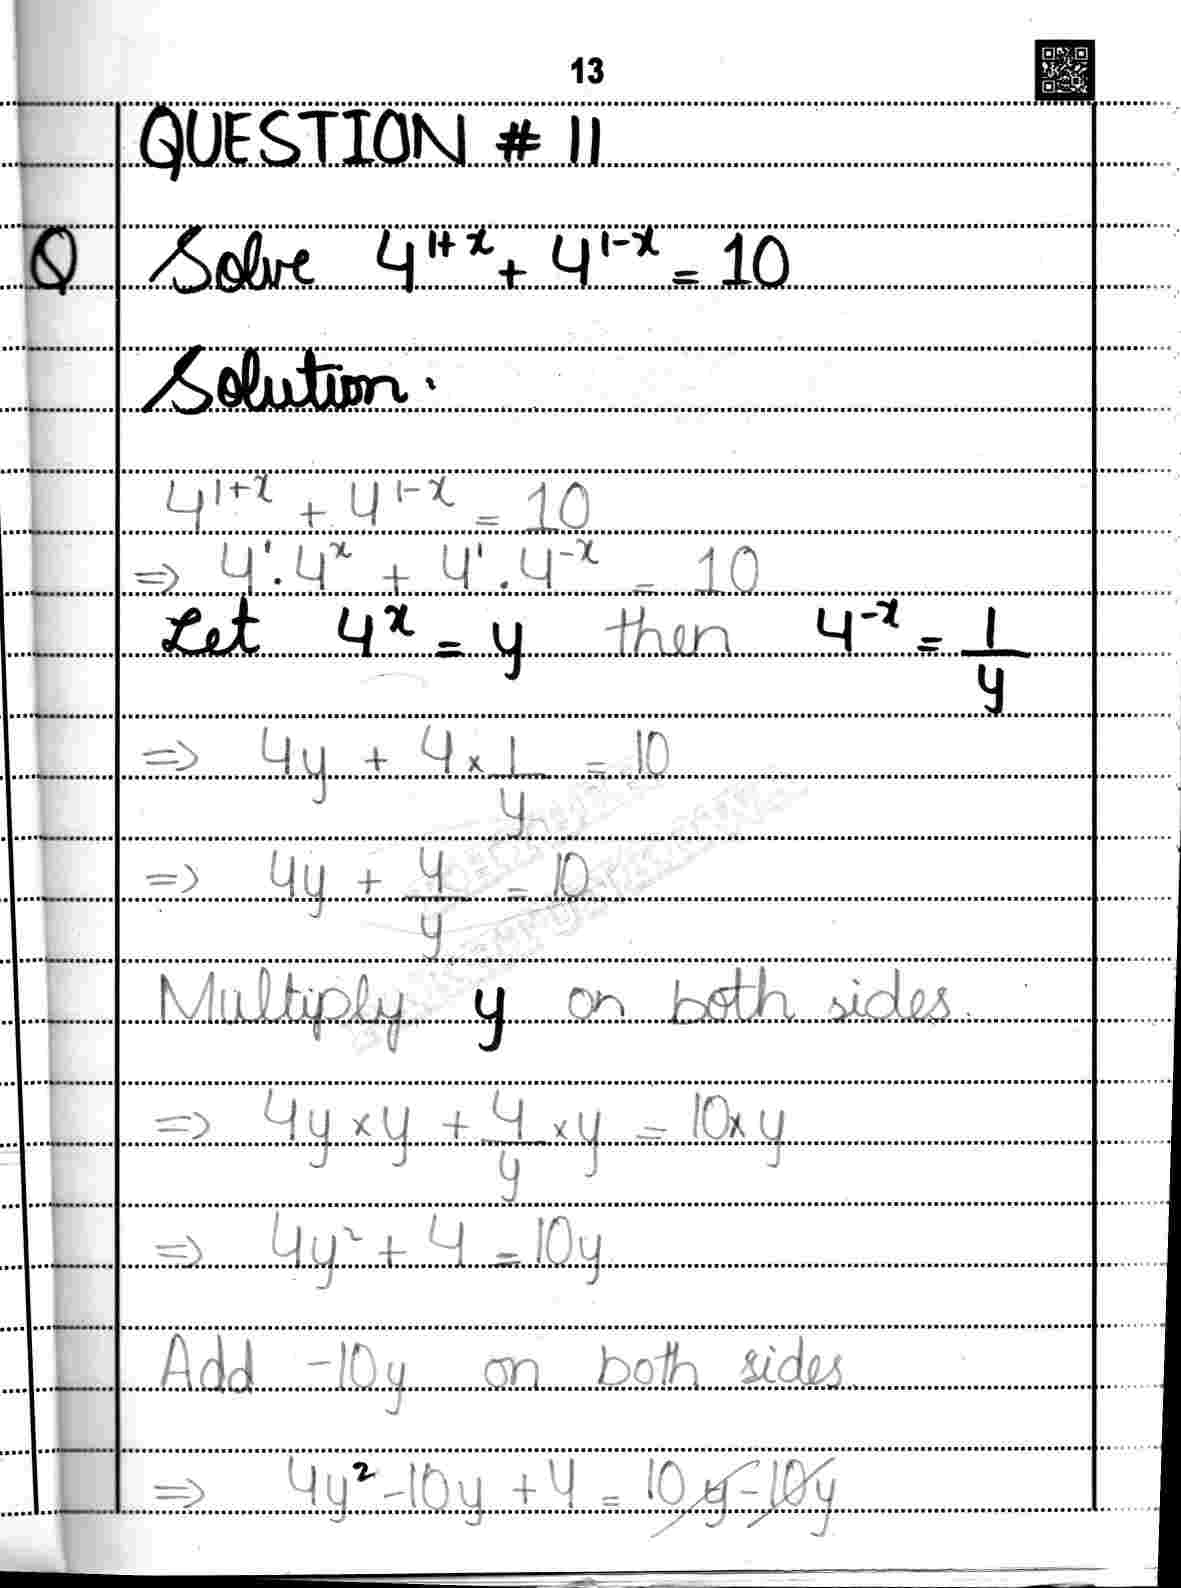 13
QUESTION # 11
Q Solve 4^{1+x} + 4^{1-x} = 10
Solution.
4^{1+x} + 4^{1-x} = 10
⇒ 4^1 . 4^x + 4^1 . 4^{-x} = 10
Let 4^x = y then 4^{-x} = 1/y
⇒ 4y + 4 × 1/y = 10
⇒ 4y + 4/y = 10
Multiply y on both sides.
⇒ 4y × y + 4/y × y = 10 × y
⇒ 4y² + 4 = 10y
Add -10y on both sides.
⇒ 4y² - 10y + 4 = 10y - 10y